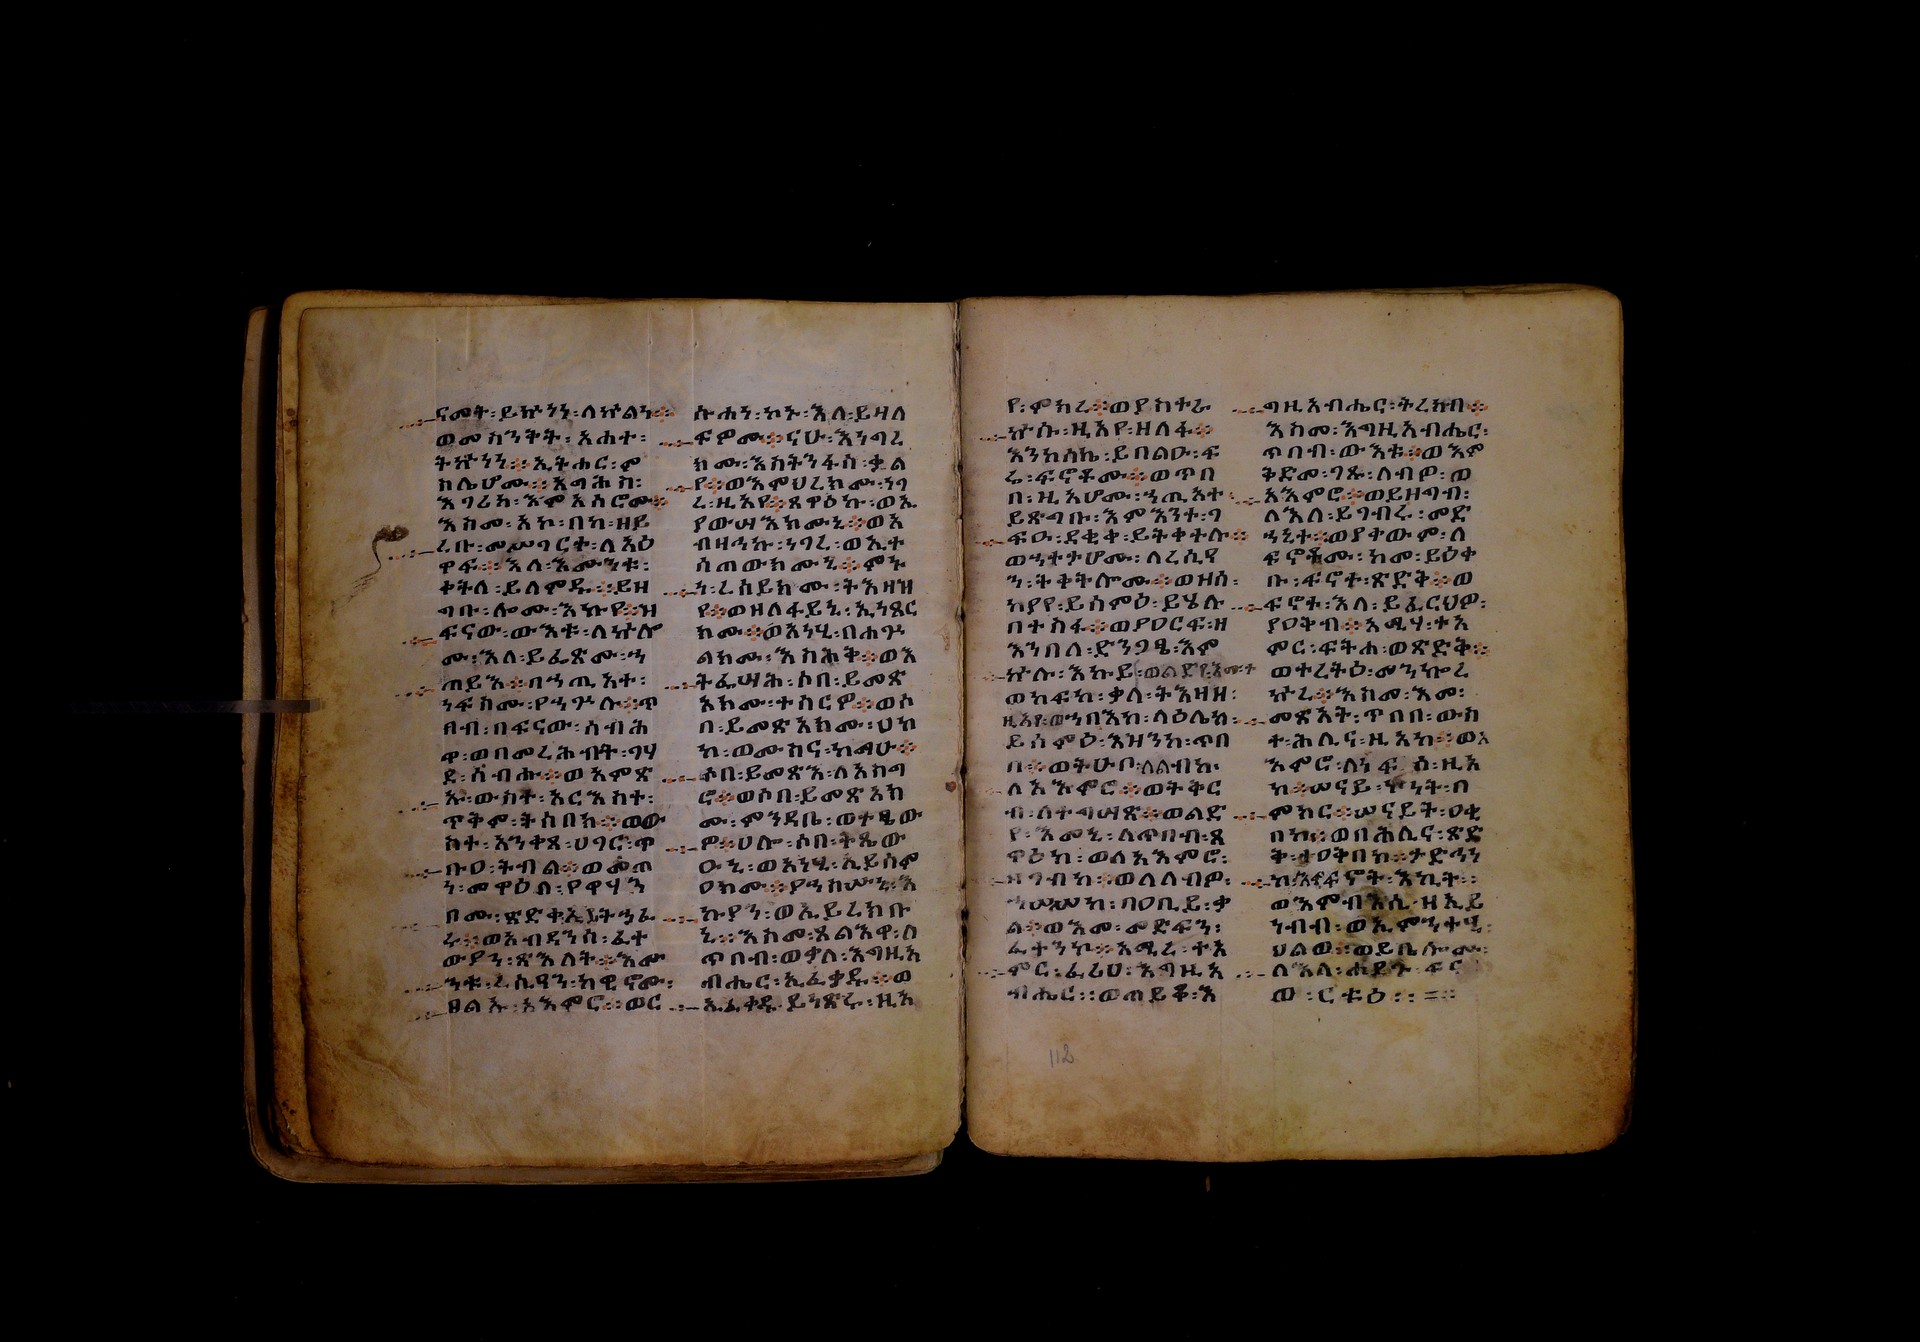 ናመት፡ይኵንን፡ለኵልነ፨
ወመከንቅት፡አሐተ፡
ትኵነነ፨ኢትሑር፡ም
ስሌሆሙ፨አግሕሥ፡
እግሪከ፡እምአሰሮሙ፨
እስመ፡አኮ፡በከ፡ዘይ
ረቡ፡መሥገርተ፡ለአዕ
ዋፍ፨እለ፡እሙንቱ፡
ቀትለ፡ይለምዱ፨ይዘ
ግቡ፡ሎሙ፡እኩየ፨ዝ
ፍናው፡ውእቱ፡ለኵሎ
ሙ፡እለ፡ይፌጽሙ፡ኃ
ጠይአ፨በኃጢአተ፡
ነፍሶሙ፡የኃጕሉ፨ጥ
በብ፡በፍናው፡ሰብሕ
ዋ፡ወበመረሕብት፡ገሃ
ደ፡ሰብሑ፨ወእምጽ
ኡ፡ውስተ፡አርእስተ፡
ጥቅም፡ትሰበክ፨ወው
ስተ፡አንቀጸ፡ሀገር፡ጥ
ቡዐ፡ትብል፨ወመጠ
ነ፡መዋዕለ፡የዋሃን
በሙ፡ጽድቀ፡ኢይትኃፈ
ሩ፨ወአብዳንሰ፡ፈተ
ውያን፡ጽእለት፨እሙ
ንቱ፡ረሲዓን፡ከዊኖሙ፡
ፀልኡ፡አእምሮ፨ወር
ሱሐነ፡ኮኑ፡እለ፡ይዛለ
ፍዎሙ፨ናሁ፡እነግረ
ክሙ፡እስትንፋስ፡ቃል
የ፨ወእምህረክሙ፡ነገ
ረ፡ዚአየ፨ጸዋዕኩ፡ወኢ
ያውሣእክሙኒ፨ወአ
ብዛኅኩ፡ነገረ፡ወኢተ
ሰጠውክሙኒ፨ምክ
ነ፡ረሰይክሙ፡ትእዛዝ
የ፨ወዘለፋይኒ፡ኢነጸር
ክሙ፨ወአነሂ፡በሐጕ
ልክሙ፡እስሕቅ፨ወእ
ትፌሣሕ፡ሶበ፡ይመጽ
አክሙ፡ተስርዎ፨ወሶ
በ፡ይመጽአክሙ፡ሀከ
ክ፡ወሙስና፡ከማሁ፨
ሶበ፡ይመጽእ፡ለአስግ
ሮ፨ወሶበ፡ይመጽአክ
ሙ፡ምንዳቤ፡ወተፄው
ዎ፨ሀሎ፡ሶበ፡ትጼው
ዑኒ፡ወአነሂ፡ኢይሰም
ዐክሙ፨ያኃሥሡኒ፡እ
ኩያን፡ወኢይረክቡ
ኒ፨እስመ፡ጸልእዋ፡ለ
ጥበብ፡ወቃለ፡እግዚአ
ብሔር፡ኢፈቃዱ፨ወ
ኢፈቀዱ፡ይነጽሩ፡ዚአ
የ፡ምክረ፨ወያስተራ
ኵሱ፡ዚአየ፡ዘለፋ፨
እንከሰኬ፡ይበልዑ፡ፍ
ሬ፡ፍኖቶሙ፨ወጥበ
በ፡ዚአሆሙ፡ኃጢአተ
ይጽግቡ፡እምእንተ፡ገ
ፍዑ፡ደቂቀ፡ይትቀተሉ፨
ወኃተታሆሙ፡ለረሲዓ
ን፡ትቅትሎሙ፨ወዝሰ፡
ከያየ፡ይሰምዕ፡ይሄሉ
በተስፋ፨ወያዐርፍ፡ዘ
እንበለ፡ድንጋፄ፡እም
ኵሉ፡እኩይ፡ወልድየ፡እመተ
ወከፍከ፡ቃለ፡ትእዛዘ፡
ዚአየ፡ወኀበእከ፡ላዕሌከ፡
ይሰምዕ፡እዝንከ፡ጥበ
በ፨ወትሁቦ፡ለልብከ፡
ለአእምሮ፨ወትቅር
ብ፡ለተግሣጽ፨ወልድ
የ፡እመኒ፡ለጥበብ፡ጸ
ዋዕከ፡ወለአእምሮ፡
ዘገብከ፨ወለልብየ፡
ኃሠሥከ፡በዐቢይ፡ቃ
ል፨ወእመ፡መድፍን፡
ፈተንኮ፨አሜረ፡ተአ
ምር፡ፈሪሀ፡እግዚአ
ብሔር፨ወጠይቆ፡እ
ግዚአብሔር፡ትረክብ፨
እስመ፡እግዚአብሔር፡
ጥበብ፡ውእቱ፨ወእም
ቅድመ፡ገጹ፡ለብዎ፡ወ
አእምሮ፨ወይዘግብ፡
ለእለ፡ይገብሩ፡መድ
ኃኒተ፨ወያቀውም፡ለ
ፍኖቶሙ፡ከመ፡ይዕቀ
ቡ፡ፍኖተ፡ጽድቅ፨ወ
ፍኖተ፡እለ፡ይፈርህዎ፡
ያዐቅብ፨አሜሃ፡ተአ
ምር፡ፍትሐ፡ወጽድቅ፨
ወተረትዕ፡መንኰረ
ኵረ፨እስመ፡እመ፡
መጽአት፡ጥበብ፡ውስ
ተ፡ሕሊና፡ዚአከ፨ወአ
እምሮ፡ለነፍሰ፡ዚአ
ከ፨ሠናይ፡ኮነት፡በ
ምክር፡ሠናይት፡ዐቂ
በከ፨ወበሕሊና፡ጽድ
ቅ፡ተዐቅበከ፨ታድኅን
ከ፡እፍኖት፡እኪት፨
ወእምብእሲ፡ዘኢይ
ነብብ፡ወኢምንተሂ፡
ህልወ፨ወይቤሎሙ፡
ለእለ፡ሐደጉ፡ፍኖ
ወ፡ርቱዕ፨
112